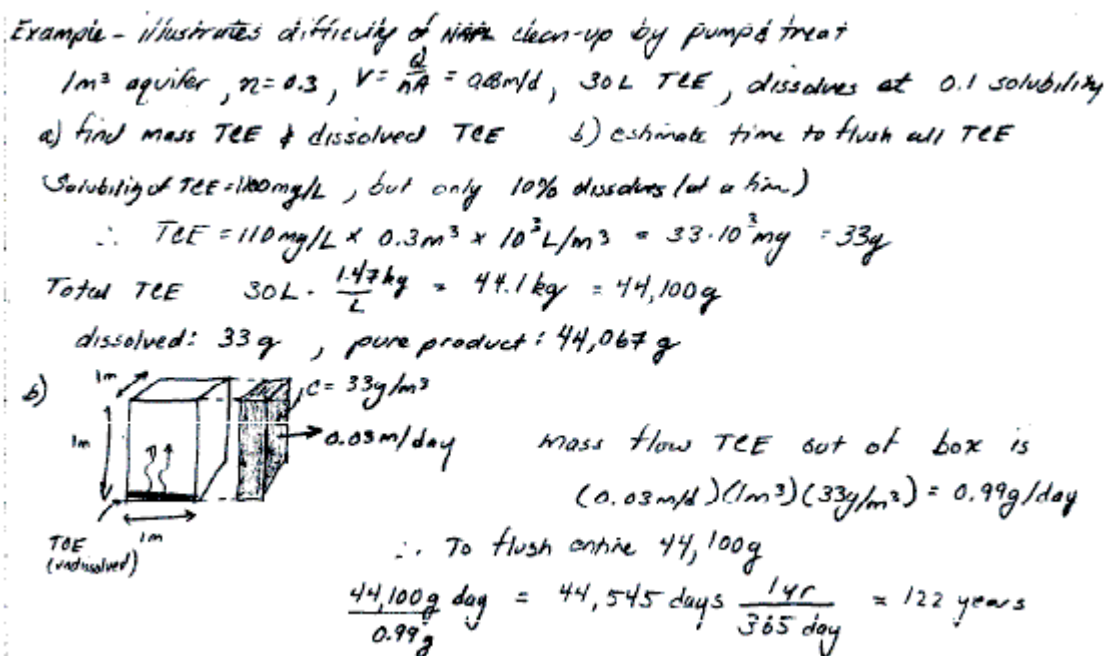 Example - illustrates difficulty of NAPL clean-up by pump & treat
1m³ aquifer, n = 0.3, V = Q/nA = 0.03m/d, 30L TCE, dissolves at 0.1 solubility
a) find mass TCE & dissolved TCE b) estimate time to flush all TCE
Solubility of TCE = 1100mg/L, but only 10% dissolves (at a time)
∴ TCE = 110 mg/L × 0.3m³ × 10³ L/m³ = 33·10³ mg = 33g
Total TCE 30L · 1.47kg/L = 44.1 kg = 44,100g
dissolved: 33 g, pure product: 44,067 g
b) 1m
C = 33g/m³
1m
0.03m/day
mass flow TCE out of box is
(0.03m/d)(1m³)(33g/m³) = 0.99g/day
1m
TCE
(undissolved)
∴ To flush entire 44,100g
44,100g day/0.99g = 44,545 days 1yr/365 day = 122 years